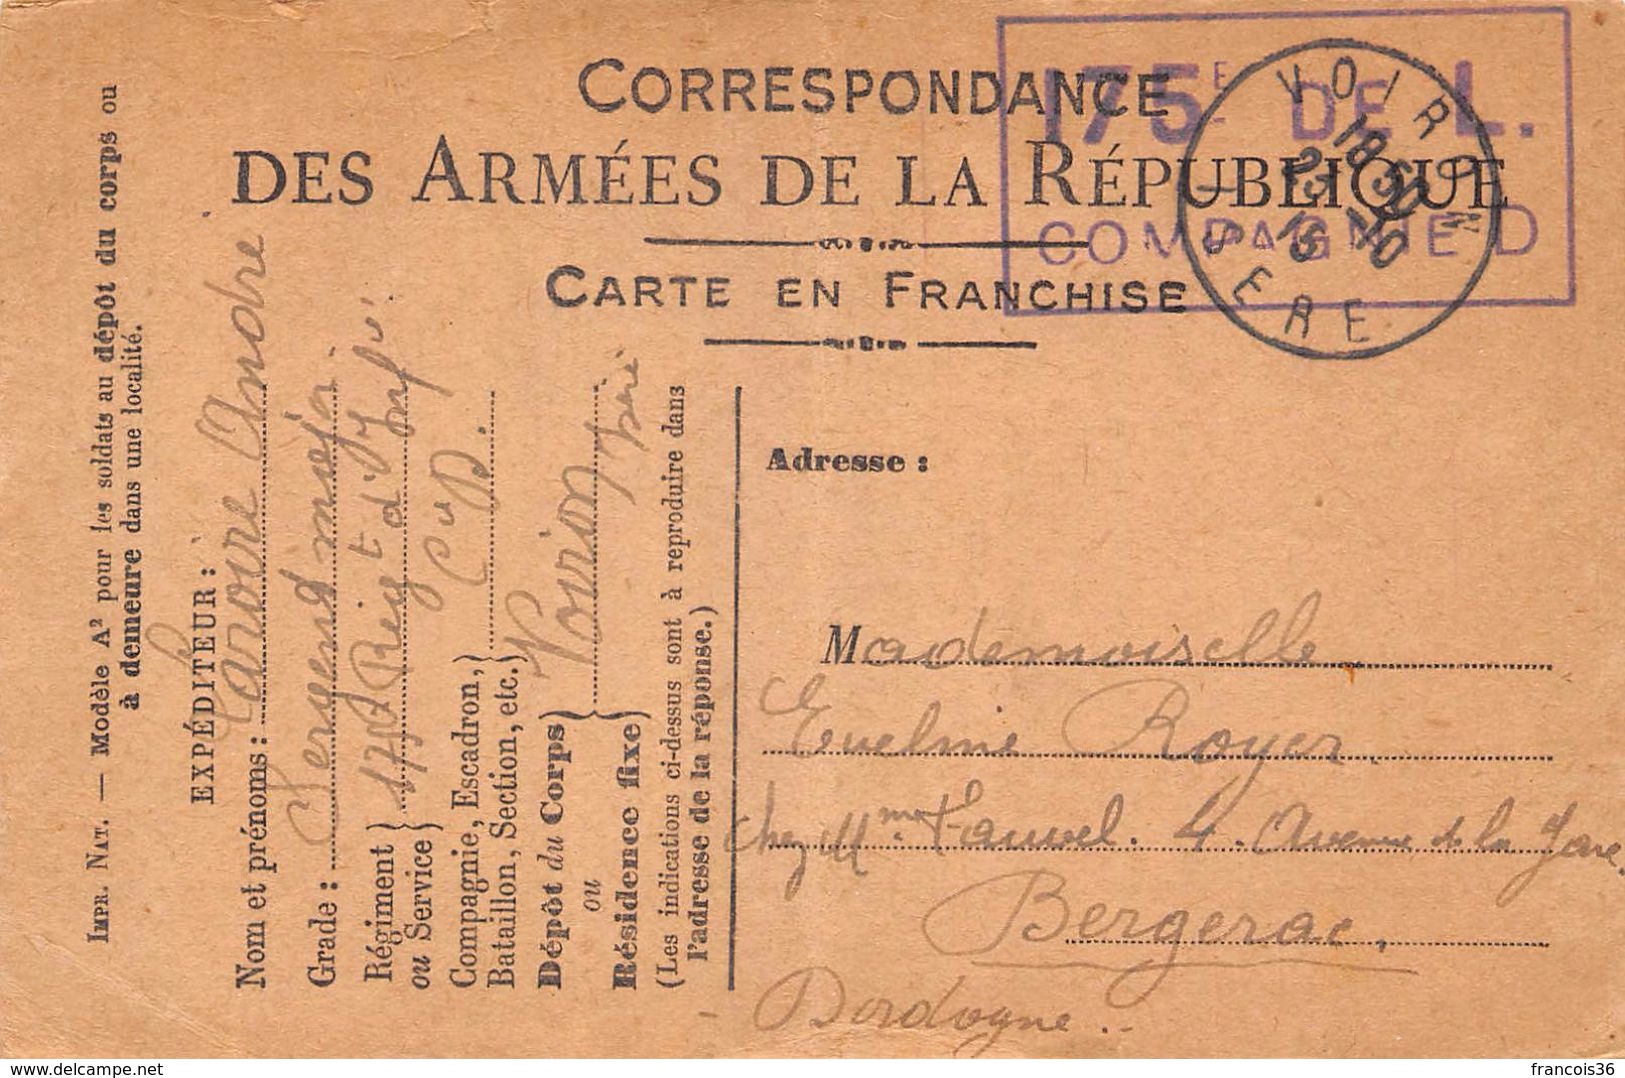 CORRESPONDANCE
DES ARMÉES DE LA RÉPUBLIQUE
CARTE EN FRANCHISE
175E DE L.
COMPAGNIE D
VOIRON
18 30
23 - 10
15
ISERE
IMPR. NAT. — Modèle A2 pour les soldats au dépôt du corps ou
à demeure dans une localité.
EXPÉDITEUR :
Nom et prénoms : André
Grade : Sergent major
Régiment } 175 Regt d'Infie
ou Service }
Compagnie, Escadron, } Cie D.
Bataillon, Section, etc. }
Dépôt du Corps } Voiron Isère
ou
Résidence fixe }
(Les indications ci-dessus sont à reproduire dans
l'adresse de la réponse.)
Adresse :
Mademoiselle
Royer
chez Mme Fauvel. 4. Avenue de la Gare
Bergerac,
Dordogne
www.delcampe.net
francois36